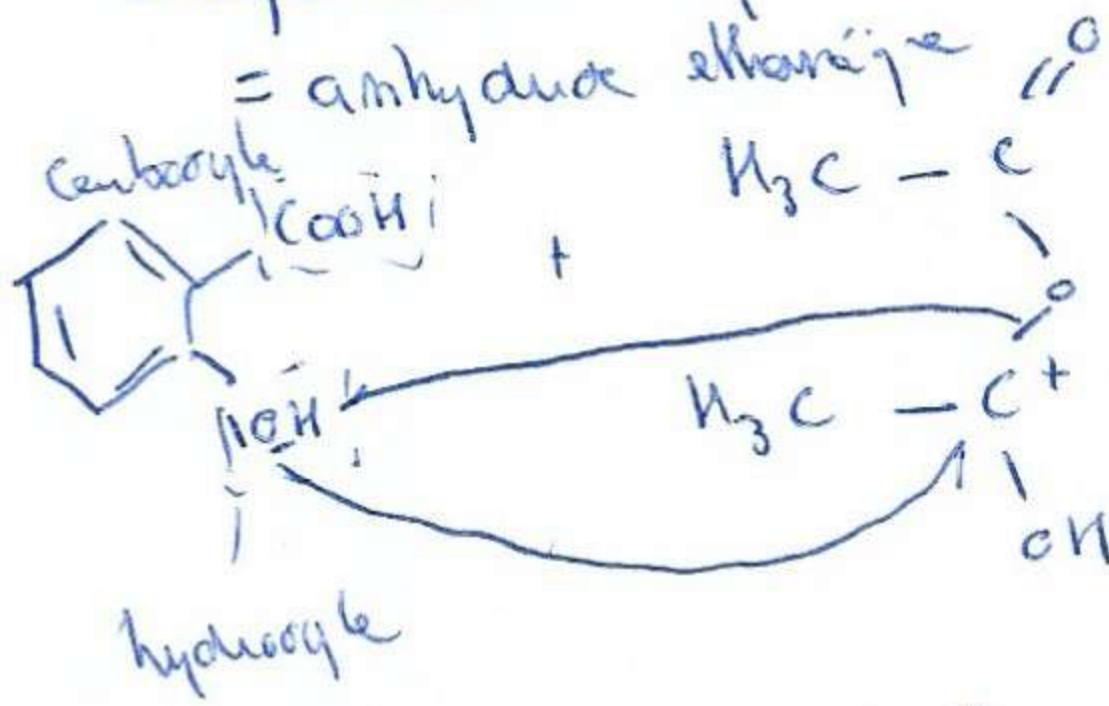 = anhydride éthanoïque
O
carboxyle
H3C - C
COOH
+
O
OH
H3C - C+
OH
hydroxyle